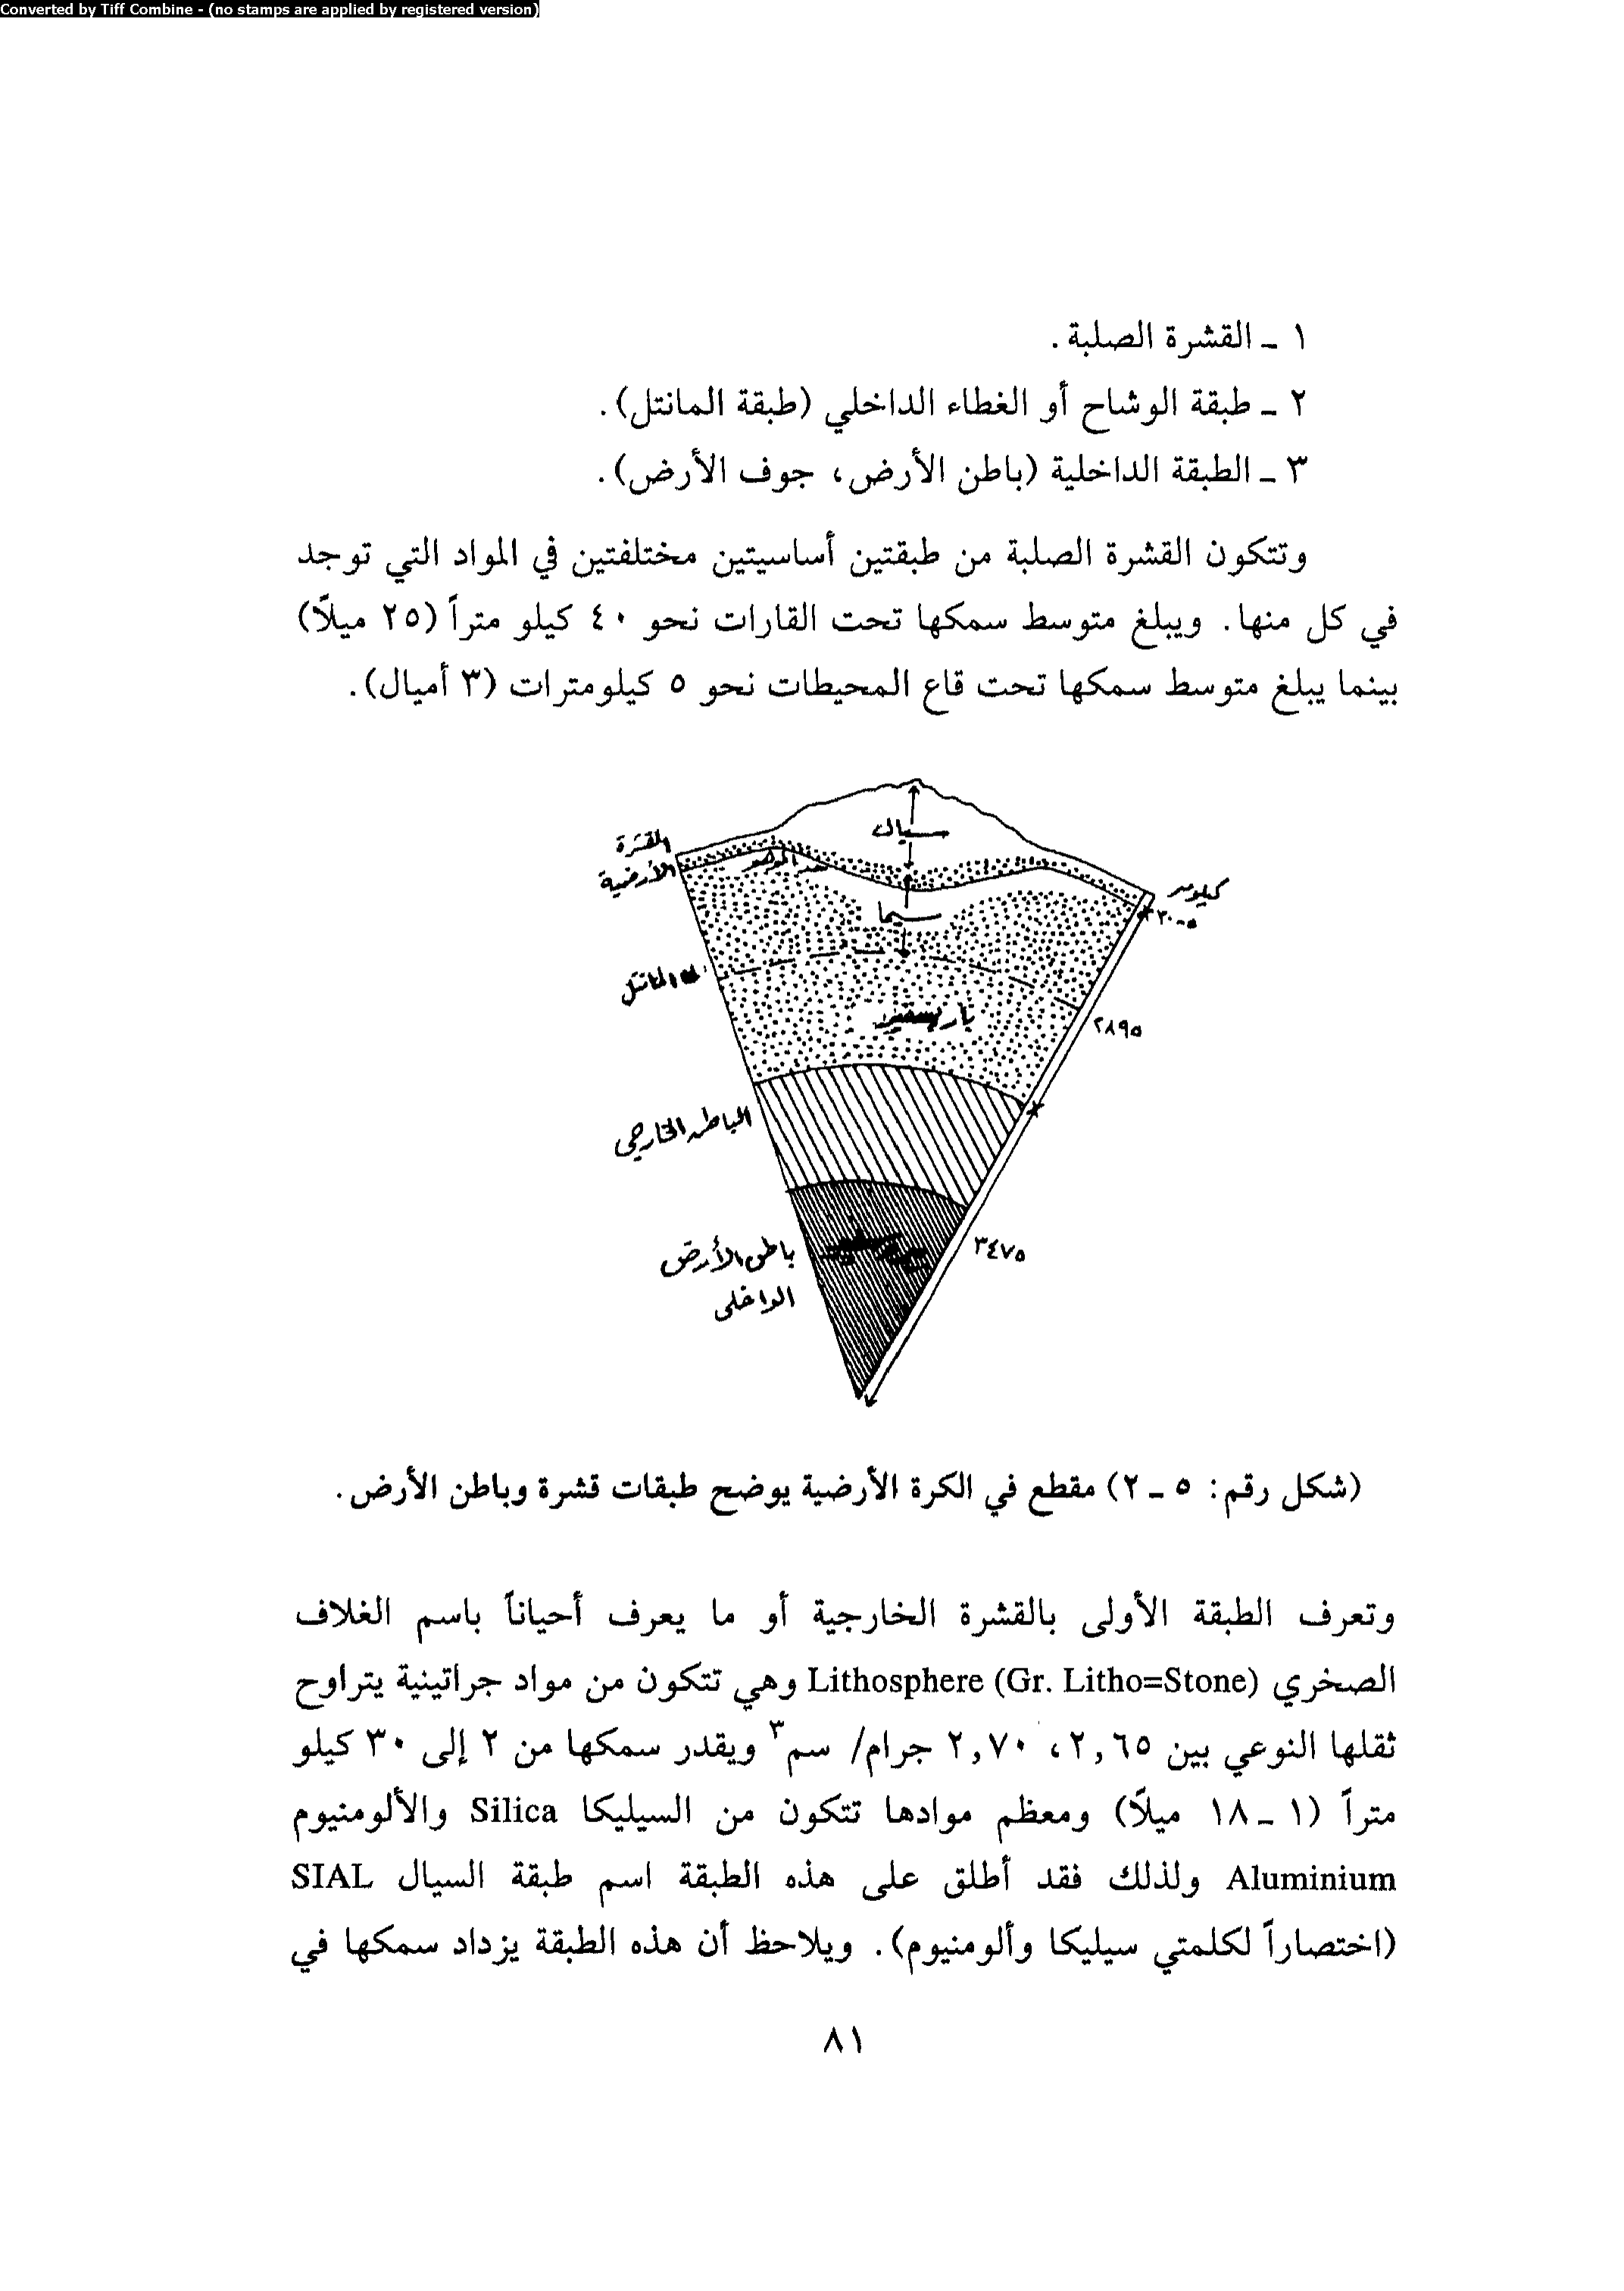 Converted by Tiff Combine - (no stamps are applied by registered version)
١ ـ القشرة الصلبة .
٢ ـ طبقة الوشاح أو الغطاء الداخلي (طبقة المانتل).
٣ ـ الطبقة الداخلية (باطن الأرض، جوف الأرض).
وتتكون القشرة الصلبة من طبقتين أساسيتين مختلفتين في المواد التي توجد
في كل منها. ويبلغ متوسط سمكها تحت القارات نحو ٤٠ كيلو متراً (٢٥ ميلاً)
بينما يبلغ متوسط سمكها تحت قاع المحيطات نحو ٥ كيلومترات (٣ أميال).
سيال
القشرة
الأرضية
كيلومتر
سيما
٥-٣٠
المانتل
باريسفير
٢٨٩٥
الباطن الخارجي
باطن الأرض
الداخلى
٣٤٧٥
(شكل رقم: ٥ ـ ٢) مقطع في الكرة الأرضية يوضح طبقات قشرة وباطن الأرض.
وتعرف الطبقة الأولى بالقشرة الخارجية أو ما يعرف أحياناً باسم الغلاف
الصخري Lithosphere (Gr. Litho=Stone) وهي تتكون من مواد جراتينية يتراوح
ثقلها النوعي بين ٢,٦٥، ٢,٧٠ جرام/ سم٣ ويقدر سمكها من ٢ إلى ٣٠ كيلو
متراً (١ ـ ١٨ ميلاً) ومعظم موادها تتكون من السيليكا Silica والألومنيوم
Aluminium ولذلك فقد أطلق على هذه الطبقة اسم طبقة السيال SIAL
(اختصاراً لكلمتي سيليكا وألومنيوم). ويلاحظ أن هذه الطبقة يزداد سمكها في
٨١